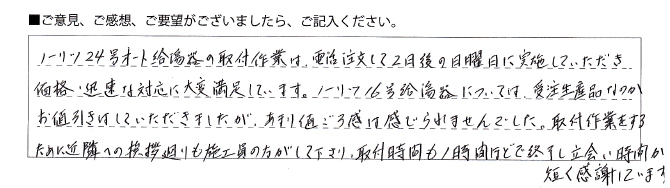 ■ご意見、ご感想、ご要望がございましたら、ご記入ください。
ノーリツ24号オート給湯器の取付作業は、電話注文して2日後の日曜日に実施していただき
価格・迅速な対応に大変満足しています。ノーリツ16号給湯器については、受注生産品なのか
お値引きはしていただきましたが、あまり値ごろ感は感じられませんでした。取付作業をする
ために近隣への挨拶廻りも施工員の方がして下さり、取付時間も1時間ほどで終了し立会い時間が
短く感謝しています